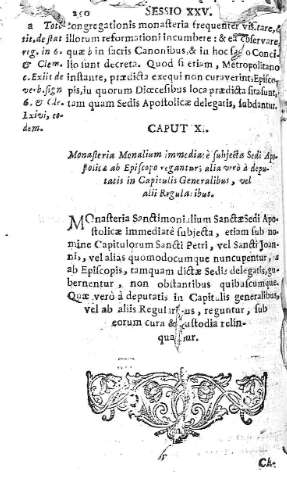 250 SESSIO XXV.
a Tot. congregationis monasteria frequenter visitare, &
tit. de stat illorum reformationi incumbere: & ea observare,
reg. in 6. quæ in sacris Canonibus, & in hoc sacro Conci-
& Clem lio sunt decreta. Quod si etiam, Metropolitano
c. Exiit de instante, prædicta exequi non curaverint; Episco-
ve-b. sign pis, in quorum Diœcesibus loca prædicta sita sunt,
6. & Cle. tam quam Sedis Apostolicæ delegatis, subdantur.
1. xivi, eo-
dem.
CAPUT XI.
Monasteria Monialium immediatè subjecta Sedi Apo-
stolicæ ab Episcopo regantur; alia verò à depu-
tatis in Capitulis Generalibus, vel
alii Regularibus.
Monasteria Sanctimonialium Sanctæ Sedi Apo-
stolicæ immediatè subjecta, etiam sub no-
mine Capitulorum Sancti Petri, vel Sancti Joan-
nis, vel alias quomodocumque nuncupentur, a
ab Episcopis, tamquam dictæ Sedis delegatis, gu-
bernentur, non obstantibus quibuscumque.
Quæ verò à deputatis in Capitulis generalibus,
vel ab aliis Regularibus, reguntur, sub
eorum cura & custodia relin-
quantur.
Ch-